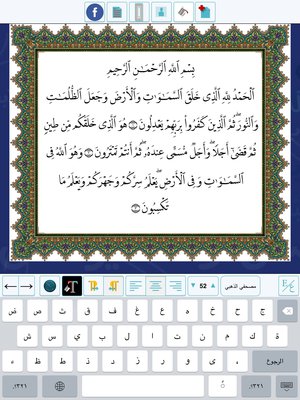 بِسْمِ ٱللَّهِ ٱلرَّحْمَـٰنِ ٱلرَّحِيمِ
ٱلْحَمْدُ لِلَّهِ ٱلَّذِى خَلَقَ ٱلسَّمَـٰوَٰتِ وَٱلْأَرْضَ وَجَعَلَ ٱلظُّلُمَـٰتِ
وَٱلنُّورَ ۖ ثُمَّ ٱلَّذِينَ كَفَرُوا۟ بِرَبِّهِمْ يَعْدِلُونَ ۝١ هُوَ ٱلَّذِى خَلَقَكُم مِّن طِينٍ
ثُمَّ قَضَىٰٓ أَجَلًا ۖ وَأَجَلٌ مُّسَمًّى عِندَهُۥ ۖ ثُمَّ أَنتُمْ تَمْتَرُونَ ۝٢ وَهُوَ ٱللَّهُ فِى
ٱلسَّمَـٰوَٰتِ وَفِى ٱلْأَرْضِ ۖ يَعْلَمُ سِرَّكُمْ وَجَهْرَكُمْ وَيَعْلَمُ مَا
تَكْسِبُونَ ۝٣
52 مصحفي الذهبي
ج ح خ ه ع غ ف ق ث ص ض
ة ك م ن ت ا ل ب ي س ش
الرجوع د ذ ر ز و ط ظ ء
.؟١٢٣ .؟١٢٣